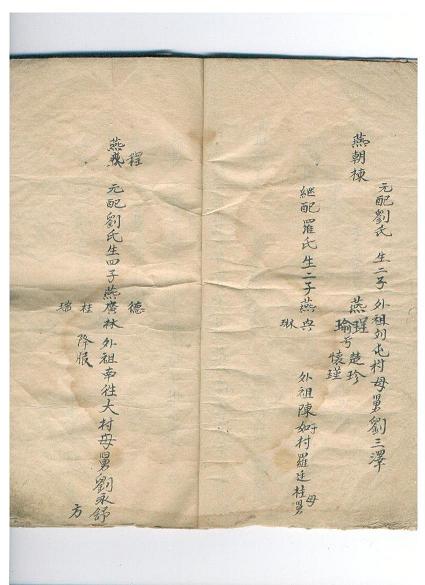 燕朝棟
元配劉氏 生二子 外祖列屯村母舅劉三澤
燕瑾 楚珍
瑜号懷瑾
繼配羅氏生二子燕典 外祖陳如村羅廷桂母舅
琳
燕 程
元配劉氏生四子燕廣林外祖南往大村母舅劉永舒
德
桂
瑞
降服
方